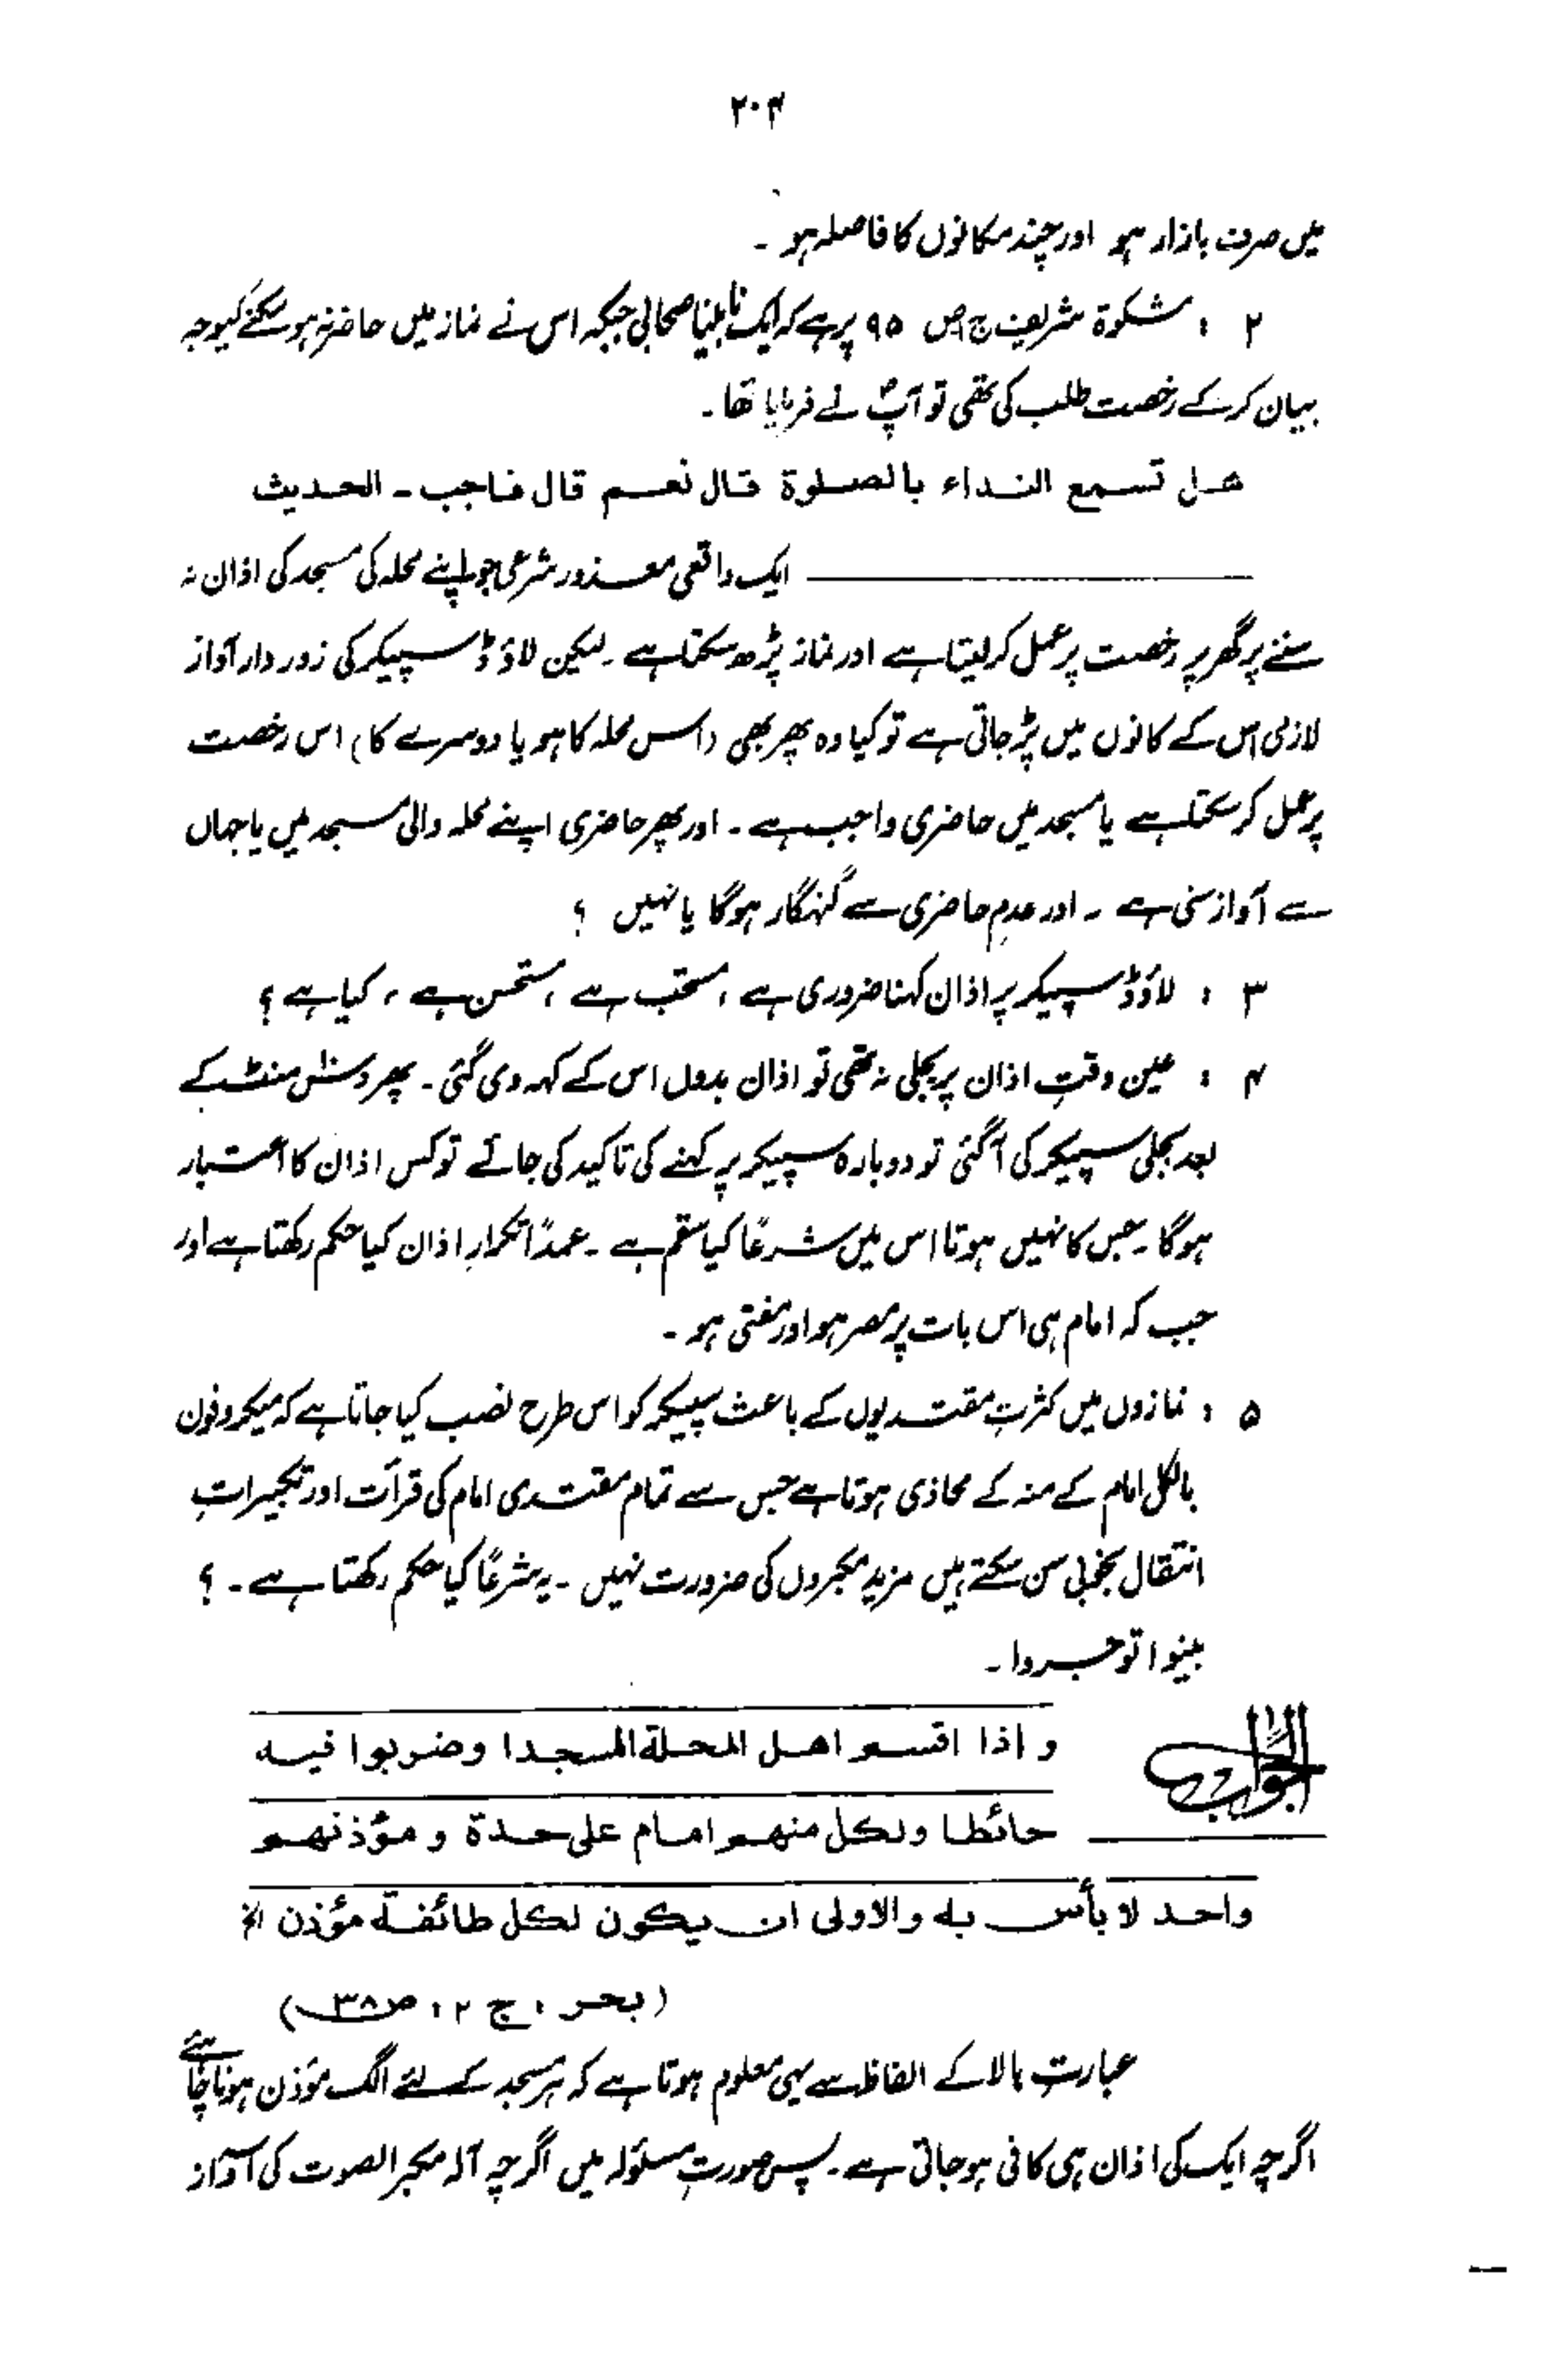 ۲۰۴
میں صرف بازار ہو اور چند مکانوں کا فاصلہ ہو ۔
۲ : مشکوٰۃ شریف ج۱ ص ۹۵ پر ہے کہ ایک نابینا صحابی جبکہ اس نے نماز میں حاضر نہ ہو سکنے کیوجہ
بیان کرکے رخصت طلب کی تھی تو آپؐ نے فرمایا تھا ۔
هل تسمع النداء بالصلوة قال نعم قال فاجب ۔ الحديث
ایک واقعی معذور شرعی جو اپنے محلہ کی مسجد کی اذان نہ
سننے پر گھر پر رخصت پر عمل کر لیتا ہے اور نماز پڑھ سکتا ہے ۔ لیکن لاؤڈ سپیکر کی زور دار آواز
لازمی اس کے کانوں میں پڑ جاتی ہے تو کیا وہ پھر بھی (اس محلہ کا ہو یا دوسرے کا) اس رخصت
پر عمل کر سکتا ہے یا مسجد میں حاضری واجب ہے ۔ اور پھر حاضری اپنے محلہ والی مسجد میں یا جہاں
سے آواز سنی ہے ۔ اور عدمِ حاضری سے گنہگار ہوگا یا نہیں ؟
۳ : لاؤڈ سپیکر پر اذان کہنا ضروری ہے ، مستحب ہے ، مستحسن ہے ، کیا ہے ؟
۴ : عین وقتِ اذان پر بجلی نہ تھی تو اذان بدوں اس کے کہہ دی گئی ۔ پھر دس منٹ کے
بعد بجلی سپیکر کی آگئی تو دوبارہ سپیکر پر کہنے کی تاکید کی جائے تو کس اذان کا اعتبار
ہوگا ۔ جس کا نہیں ہوتا اس میں شرعًا کیا سقم ہے ۔ عمدًا تکرارِ اذان کیا حکم رکھتا ہے اور
جب کہ امام ہی اس بات پر مصر ہو اور مفتی ہو ۔
۵ : نمازوں میں کثرتِ مقتدیوں کے باعث سپیکر کو اس طرح نصب کیا جاتا ہے کہ میکروفون
بالکل امام کے منہ کے محاذی ہوتا ہے جس سے تمام مقتدی امام کی قرآت اور تکبیراتِ
انتقال بخوبی سن سکتے ہیں مزید مکبروں کی ضرورت نہیں ۔ یہ شرعًا کیا حکم رکھتا ہے ۔ ؟
بینوا توجروا ۔
الجواب
و اذا اقسم اهل المحلة المسجدا وضربوا فيه
حائطا ولكل منهم امام على حدة و مؤذنهم
واحد لا بأس به والاولى ان يكون لكل طائفة مؤذن الخ
(بحر ، ج ۲ ، ص۳۸)
عبارتِ بالا کے الفاظ سے یہی معلوم ہوتا ہے کہ ہر مسجد کے لئے الگ مؤذن ہونا چاہئے
اگرچہ ایک کی اذان ہی کافی ہو جاتی ہے ۔ پس صورتِ مسئولہ میں اگرچہ آلہ مکبر الصوت کی آواز